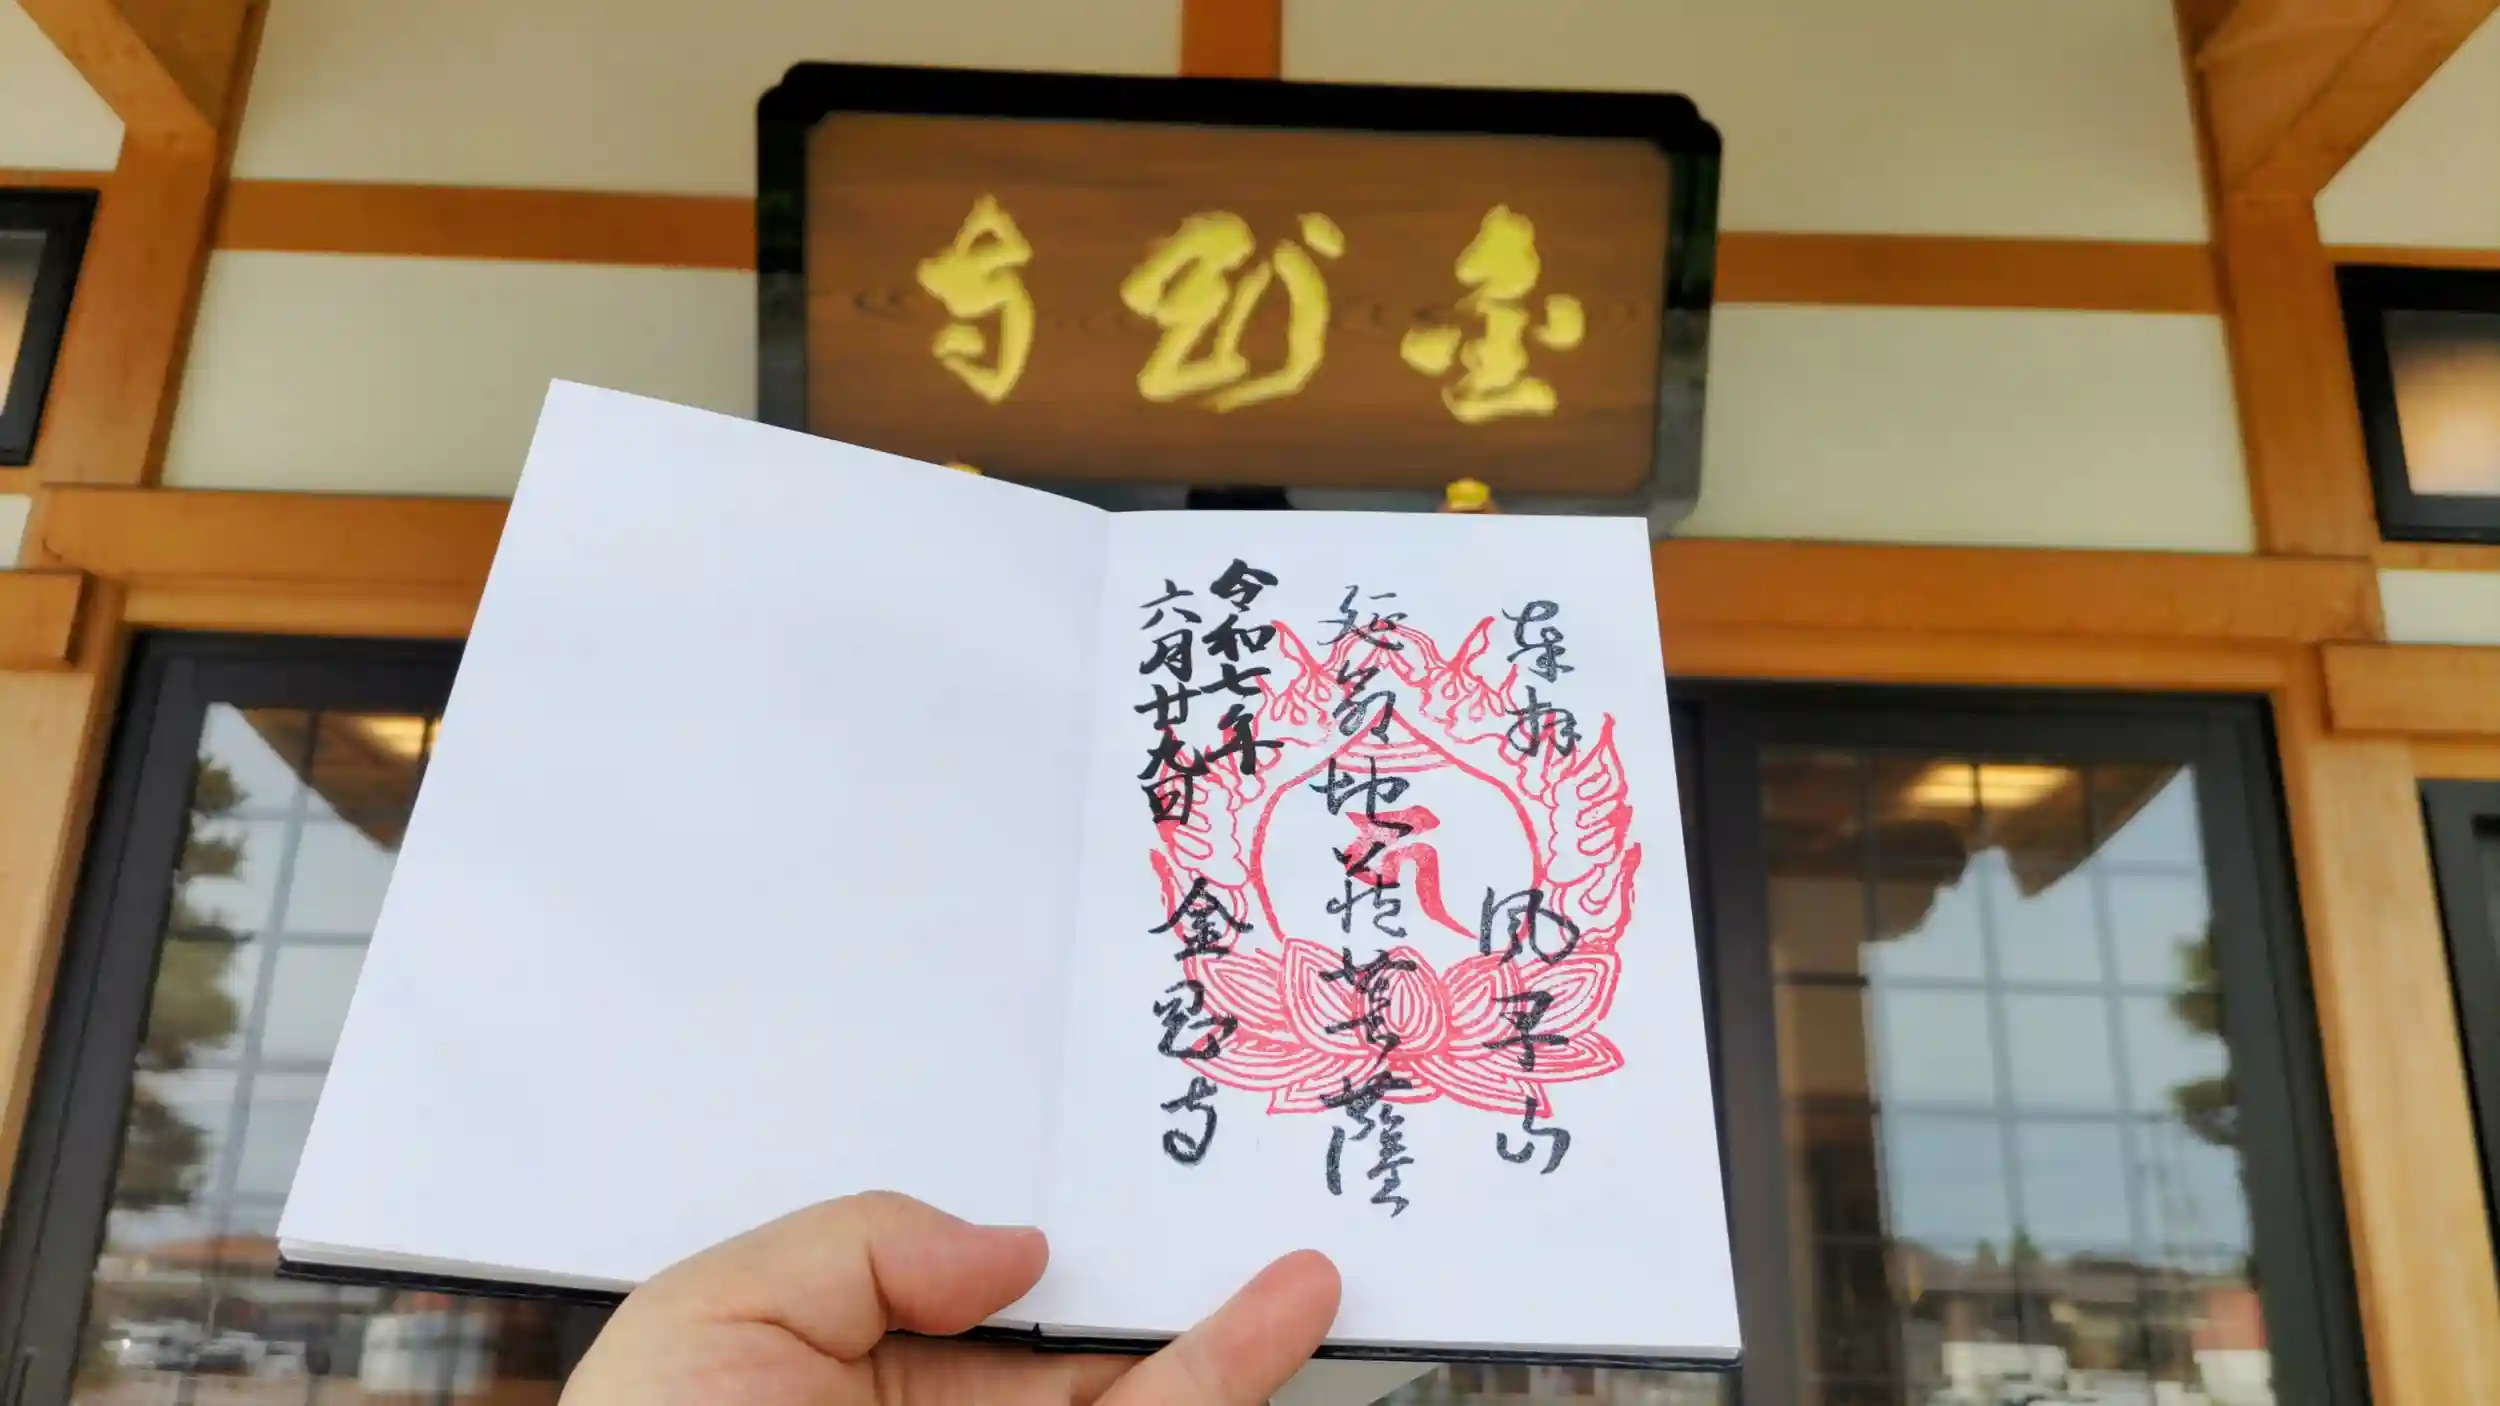 金 寺
奉拝
山
延命地蔵菩薩
令和七年
六月廿九日
金 寺